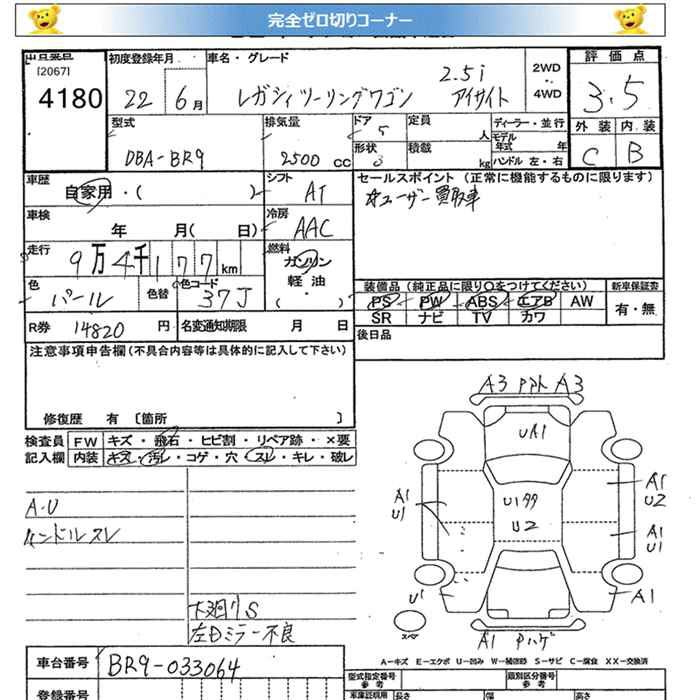 完全ゼロ切りコーナー
[2067]
4180
初度登録年月
22年 6月
車名・グレード
2.5i
レガシィツーリングワゴン アイサイト
2WD
・
4WD
評価点
3.5
外装 内装
C B
型式
DBA-BR9
排気量
2500 cc
ドア
5
形状
定員
人
積載
kg
ディーラー・並行
モデル
年式 年
ハンドル 左・右
車歴
自家用・( )
シフト
AT
セールスポイント (正常に機能するものに限ります)
ユーザー買取車
車検
年 月( 日)
冷房
AAC
走行
9万4千177km
燃料
ガソリン
軽油
・
( )
色
パール
色替
色コード
37J
装備品 (純正品に限り○をつけてください)
新車保証書
PS PW ABS エアB AW
有・無
SR ナビ TV カワ
R券 14820 円
名変通知期限 月 日
後日品
注意事項申告欄(不具合内容等は具体的に記入して下さい)
修復歴 有 〔箇所 〕
検査員 FW キズ・飛石・ヒビ割・リペア跡・×要
記入欄 内装 キズ・汚レ・コゲ・穴・スレ・キレ・破レ
A・U
ハンドルスレ
下廻りS
左Dミラー不良
A3 A3
UA1
A1
U1
U1
U2
A1
U2
A1
U1
U1
A1
スペア
A1 Pハゲ
A=キズ E=エクボ U=凹み W=補修跡 S=サビ C=腐食 XX=交換済
車台番号
BR9-033064
登録番号
型式指定番号
参考
類別区分番号
参考
車庫証明用
長さ
幅
高さ